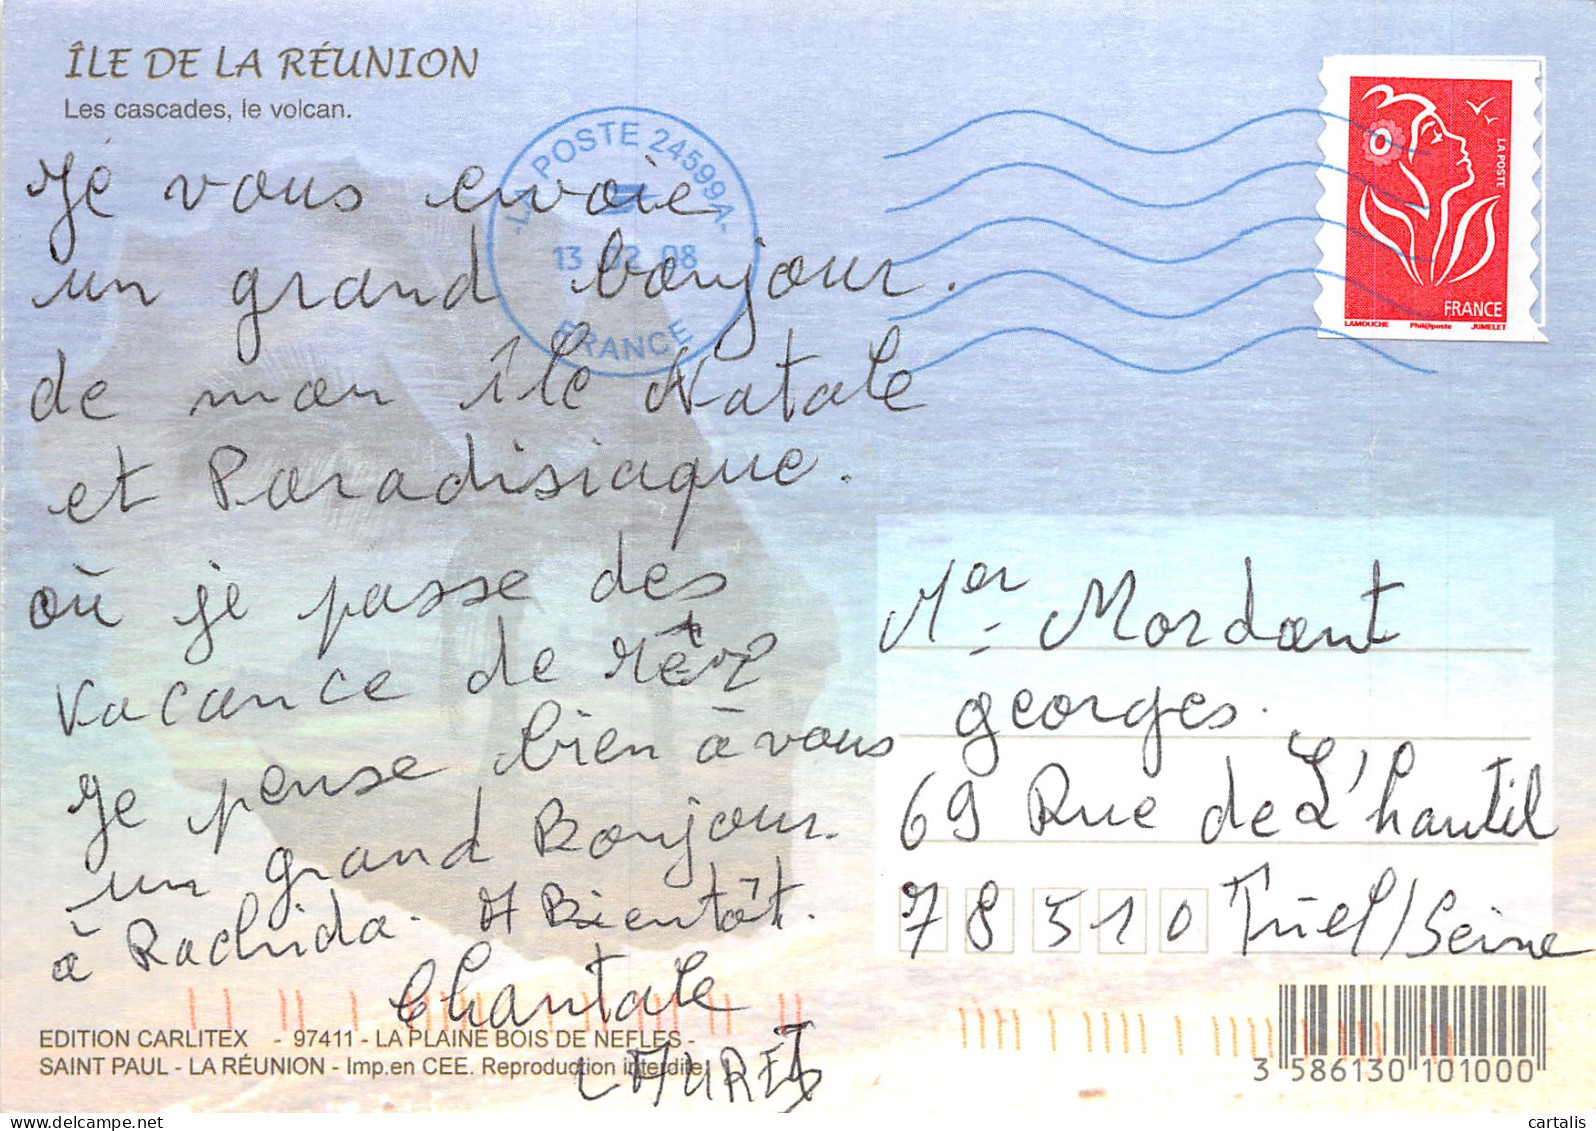 ÎLE DE LA RÉUNION
Les cascades, le volcan.
Je vous envoie
un grand bonjour.
de mon île Natale
et Paradisiaque.
où je passe des
vacance de rêve
Je pense bien à vous
un grand Bonjour.
à Rachida. A Bientôt.
Chantale
LAURET
-LA POSTE 24599A-
13 02 08
FRANCE
LA POSTE
FRANCE
LAMOUCHE Phil@poste JUMELET
Mer Mordant
georges.
69 Rue de L'hautil
78510 Triel/Seine
EDITION CARLITEX - 97411 - LA PLAINE BOIS DE NEFLES -
SAINT PAUL - LA RÉUNION - Imp.en CEE. Reproduction interdite.
3 586130 101000
cartalis